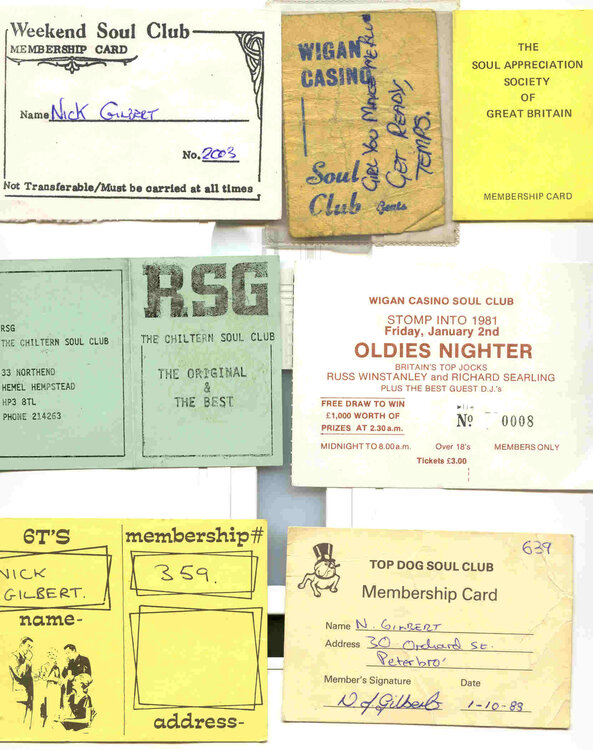 Weekend Soul Club
MEMBERSHIP CARD
Name Nick Gilbert
No. 2003
Not Transferable/Must be carried at all times
WIGAN
CASINO
Soul
Club Gents
GIRL YOU MAKE ME BLUE
GET READY,
TEMPS.
THE
SOUL APPRECIATION
SOCIETY
OF
GREAT BRITAIN
MEMBERSHIP CARD
RSG
THE CHILTERN SOUL CLUB
33 NORTHEND
HEMEL HEMPSTEAD
HP3 8TL
PHONE 214263
RSG
THE CHILTERN SOUL CLUB
THE ORIGINAL
&
THE BEST
WIGAN CASINO SOUL CLUB
STOMP INTO 1981
Friday, January 2nd
OLDIES NIGHTER
BRITAIN'S TOP JOCKS
RUSS WINSTANLEY and RICHARD SEARLING
PLUS THE BEST GUEST D.J.'s
FREE DRAW TO WIN
£1,000 WORTH OF
PRIZES AT 2.30 a.m.
No 0008
MIDNIGHT TO 8.00a.m. Over 18's MEMBERS ONLY
Tickets £3.00
6T'S
NICK
GILBERT.
name-
membership#
359.
address-
639
TOP DOG SOUL CLUB
Membership Card
Name N. GILBERT
Address 30 Orchard St.
Peterbro'
Member's Signature Date
N J Gilbert 1-10-88